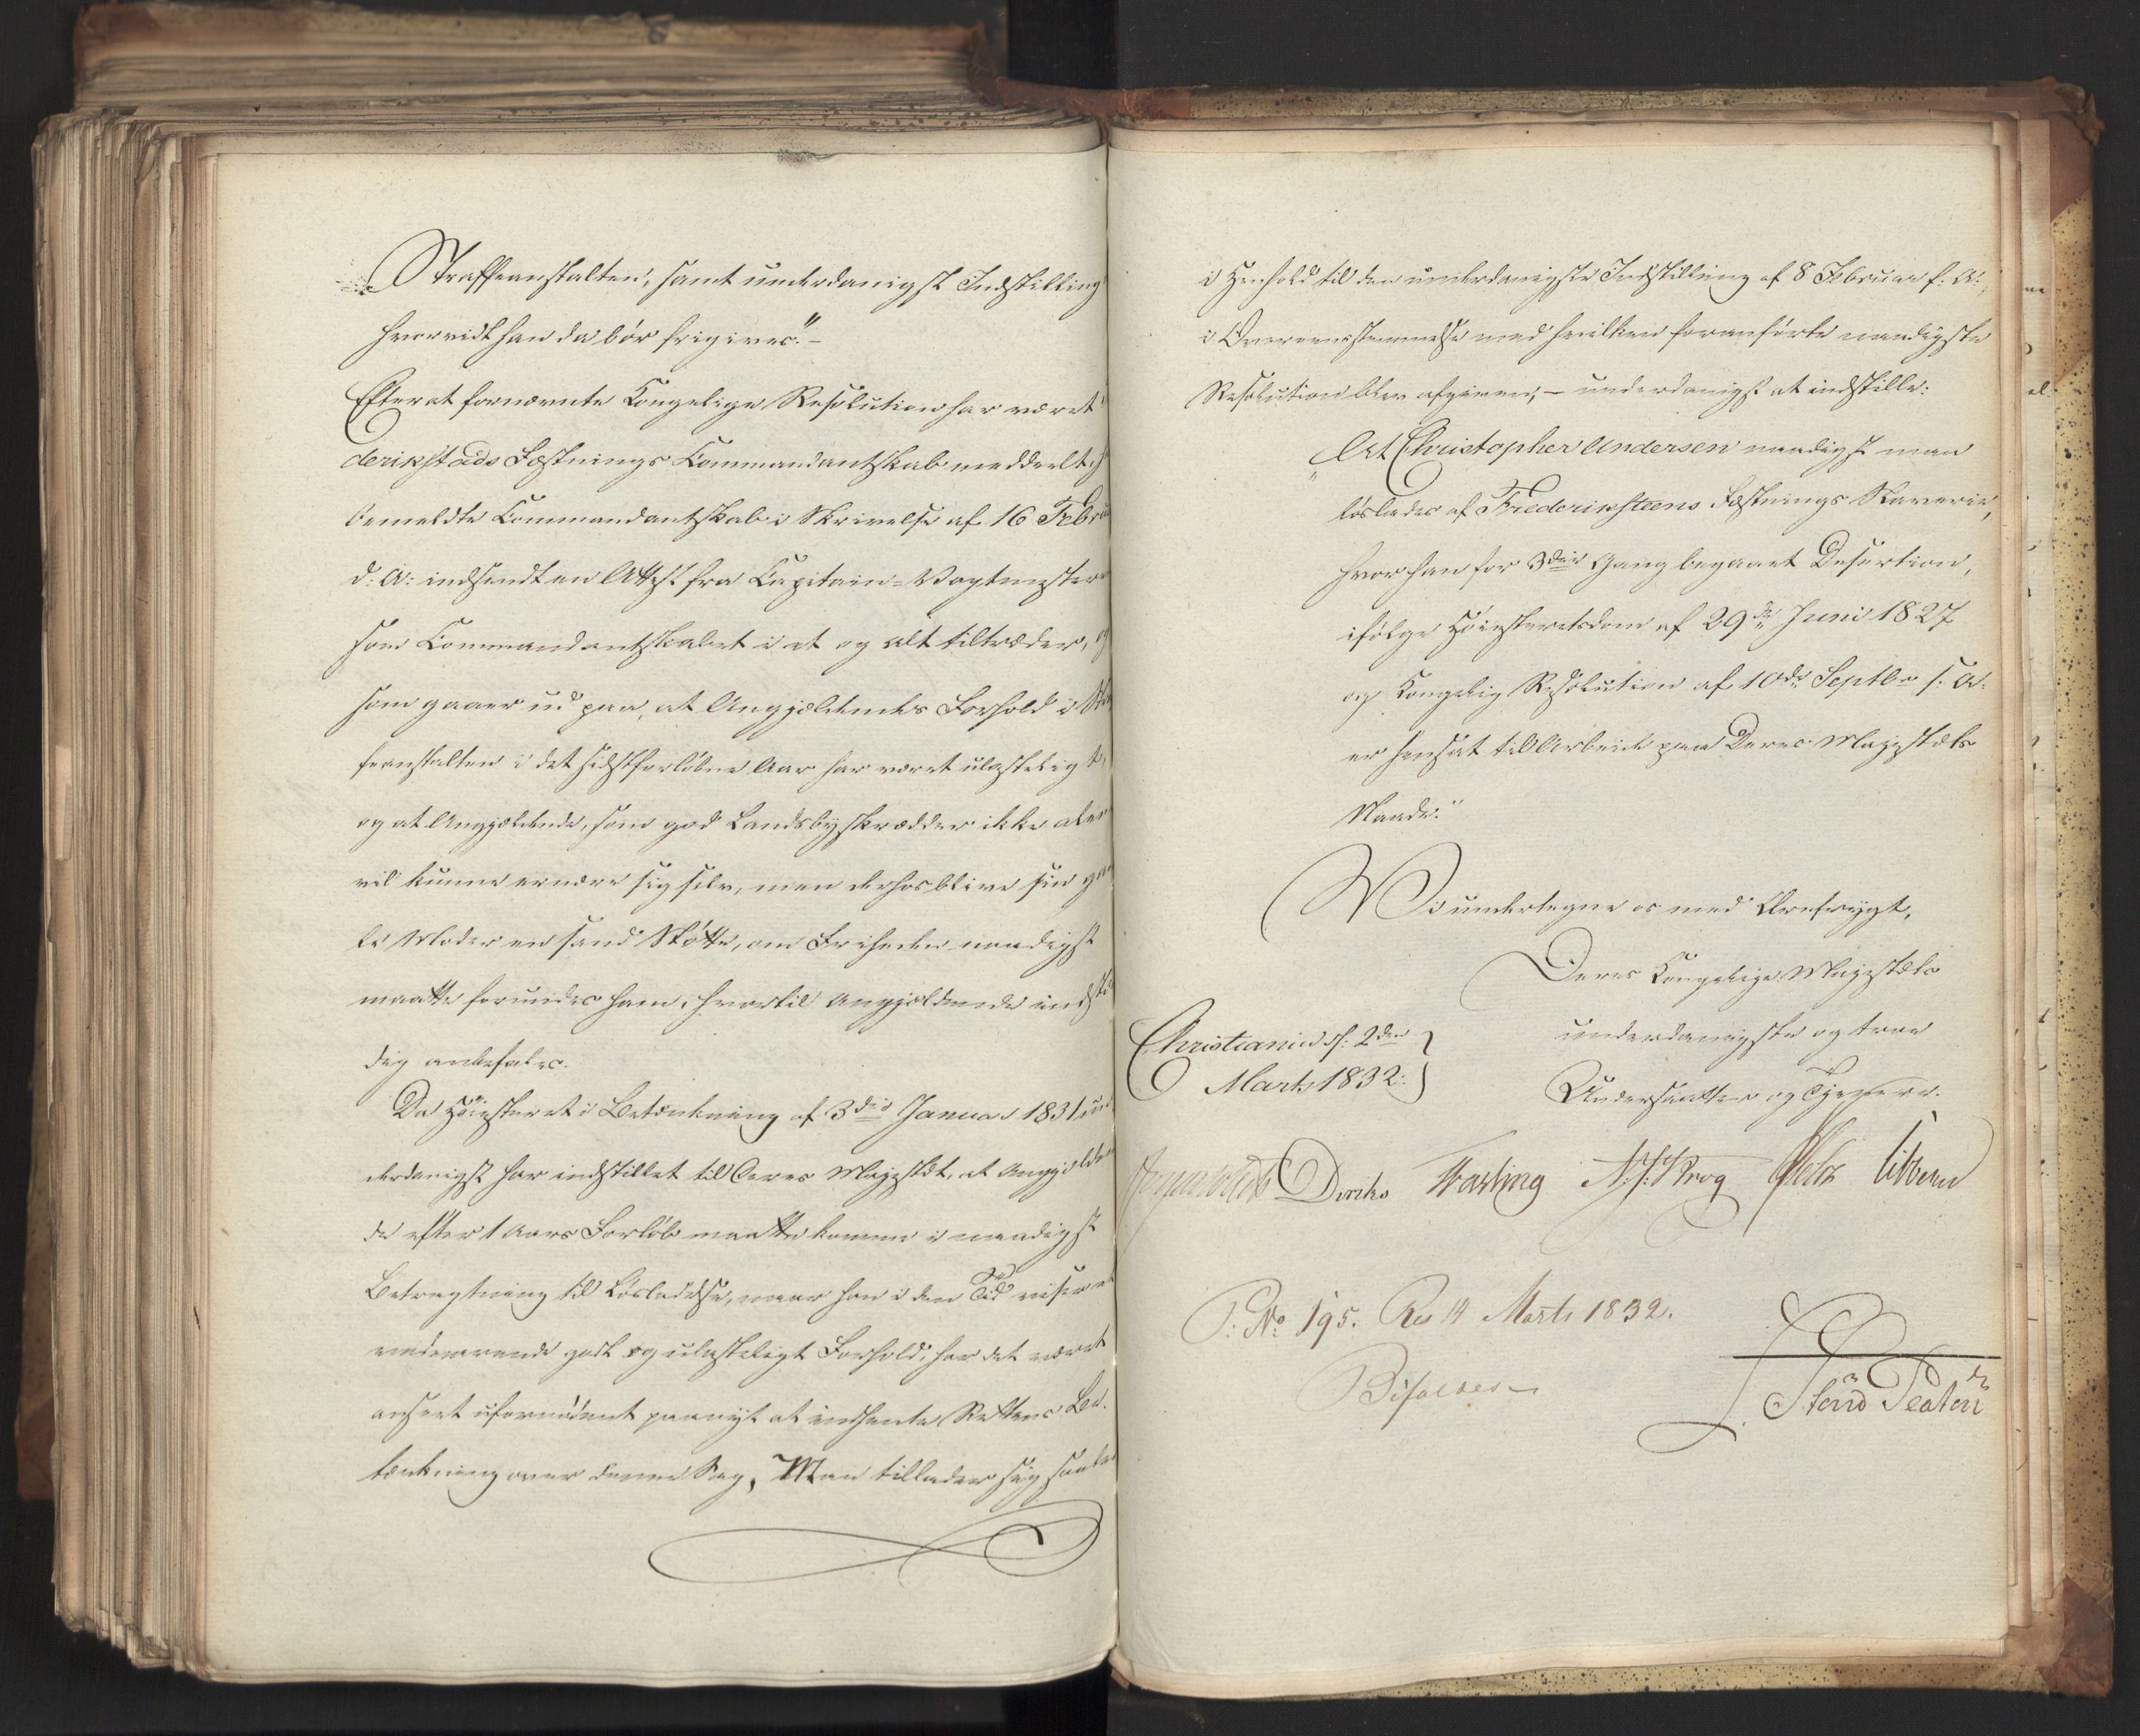 Straffeanstalten, samt underdanigst Indstilling
hvorvidt han da bør frigives." –
Efterat fornævnte Kongelige Resolution har været
derikstads Fæstnings Commandantskab meddeelt,
bemeldte Commandantskab i Skrivelse af 16 Febru
d: A: indsendt en Attest fra Capitain-Vagtmesteren
som Commandantskabet i et og alt tiltræder, og
som gaaer ud paa, at Angjældendes Forhold i Straf
feanstalten i det sidstforløbne Aar har været ulasteligt,
og at Angjældende, som god Landsbyskrædder ikke alene
vil kunne ernære sig selv, men derhos blive sin gam
le Moder en sand Støtte, om Friheden naadigst
maatte forundes ham, hvortil Angjældende indstæn
dig anbefales.
Da Høiesteret i Betænkning af 3die Januar 1831 un
derdanigst har indstillet til Deres Majestæt, at Angjælden
de efter 1 Aars Forløb maatte komme i naadigst
Betragtning til Løsladelse, naar han i den Tid viser et
vedvarende godt og ulasteligt Forhold, har det været
anseet ufornødent paanyt at indhente Rettens Be-
tænkning over denne Sag. Man tillader sig saaledes
i Henhold til den underdanigste Indstilling af 8 Februar f: A:,
i Overeensstemmelse med hvilken foranførte naadigste
Resolution blev afgiven, – underdanigst at indstille:
"At Christopher Andersen naadigst maa
løslades af Frederiksteens Fæstnings Slaverie,
hvor han for 3die Gang begaaet Desertion,
ifølge Høiesteretsdom af 29de Juni 1827
og Kongelig Resolution af 10de Septbr s: A:
er hensat til Arbeide paa Deres Majestæts
Naade."
Vi undertegne os med Ærefrygt,
Deres Kongelige Majestæts
underdanigste og troe
Undersaatter og Tjenere.
Christiania d. 2den
Marts 1832.
Diriks Fasting Krog Holst Sibbern
P: No 195. Res 14 Marts 1832.
Bifaldes